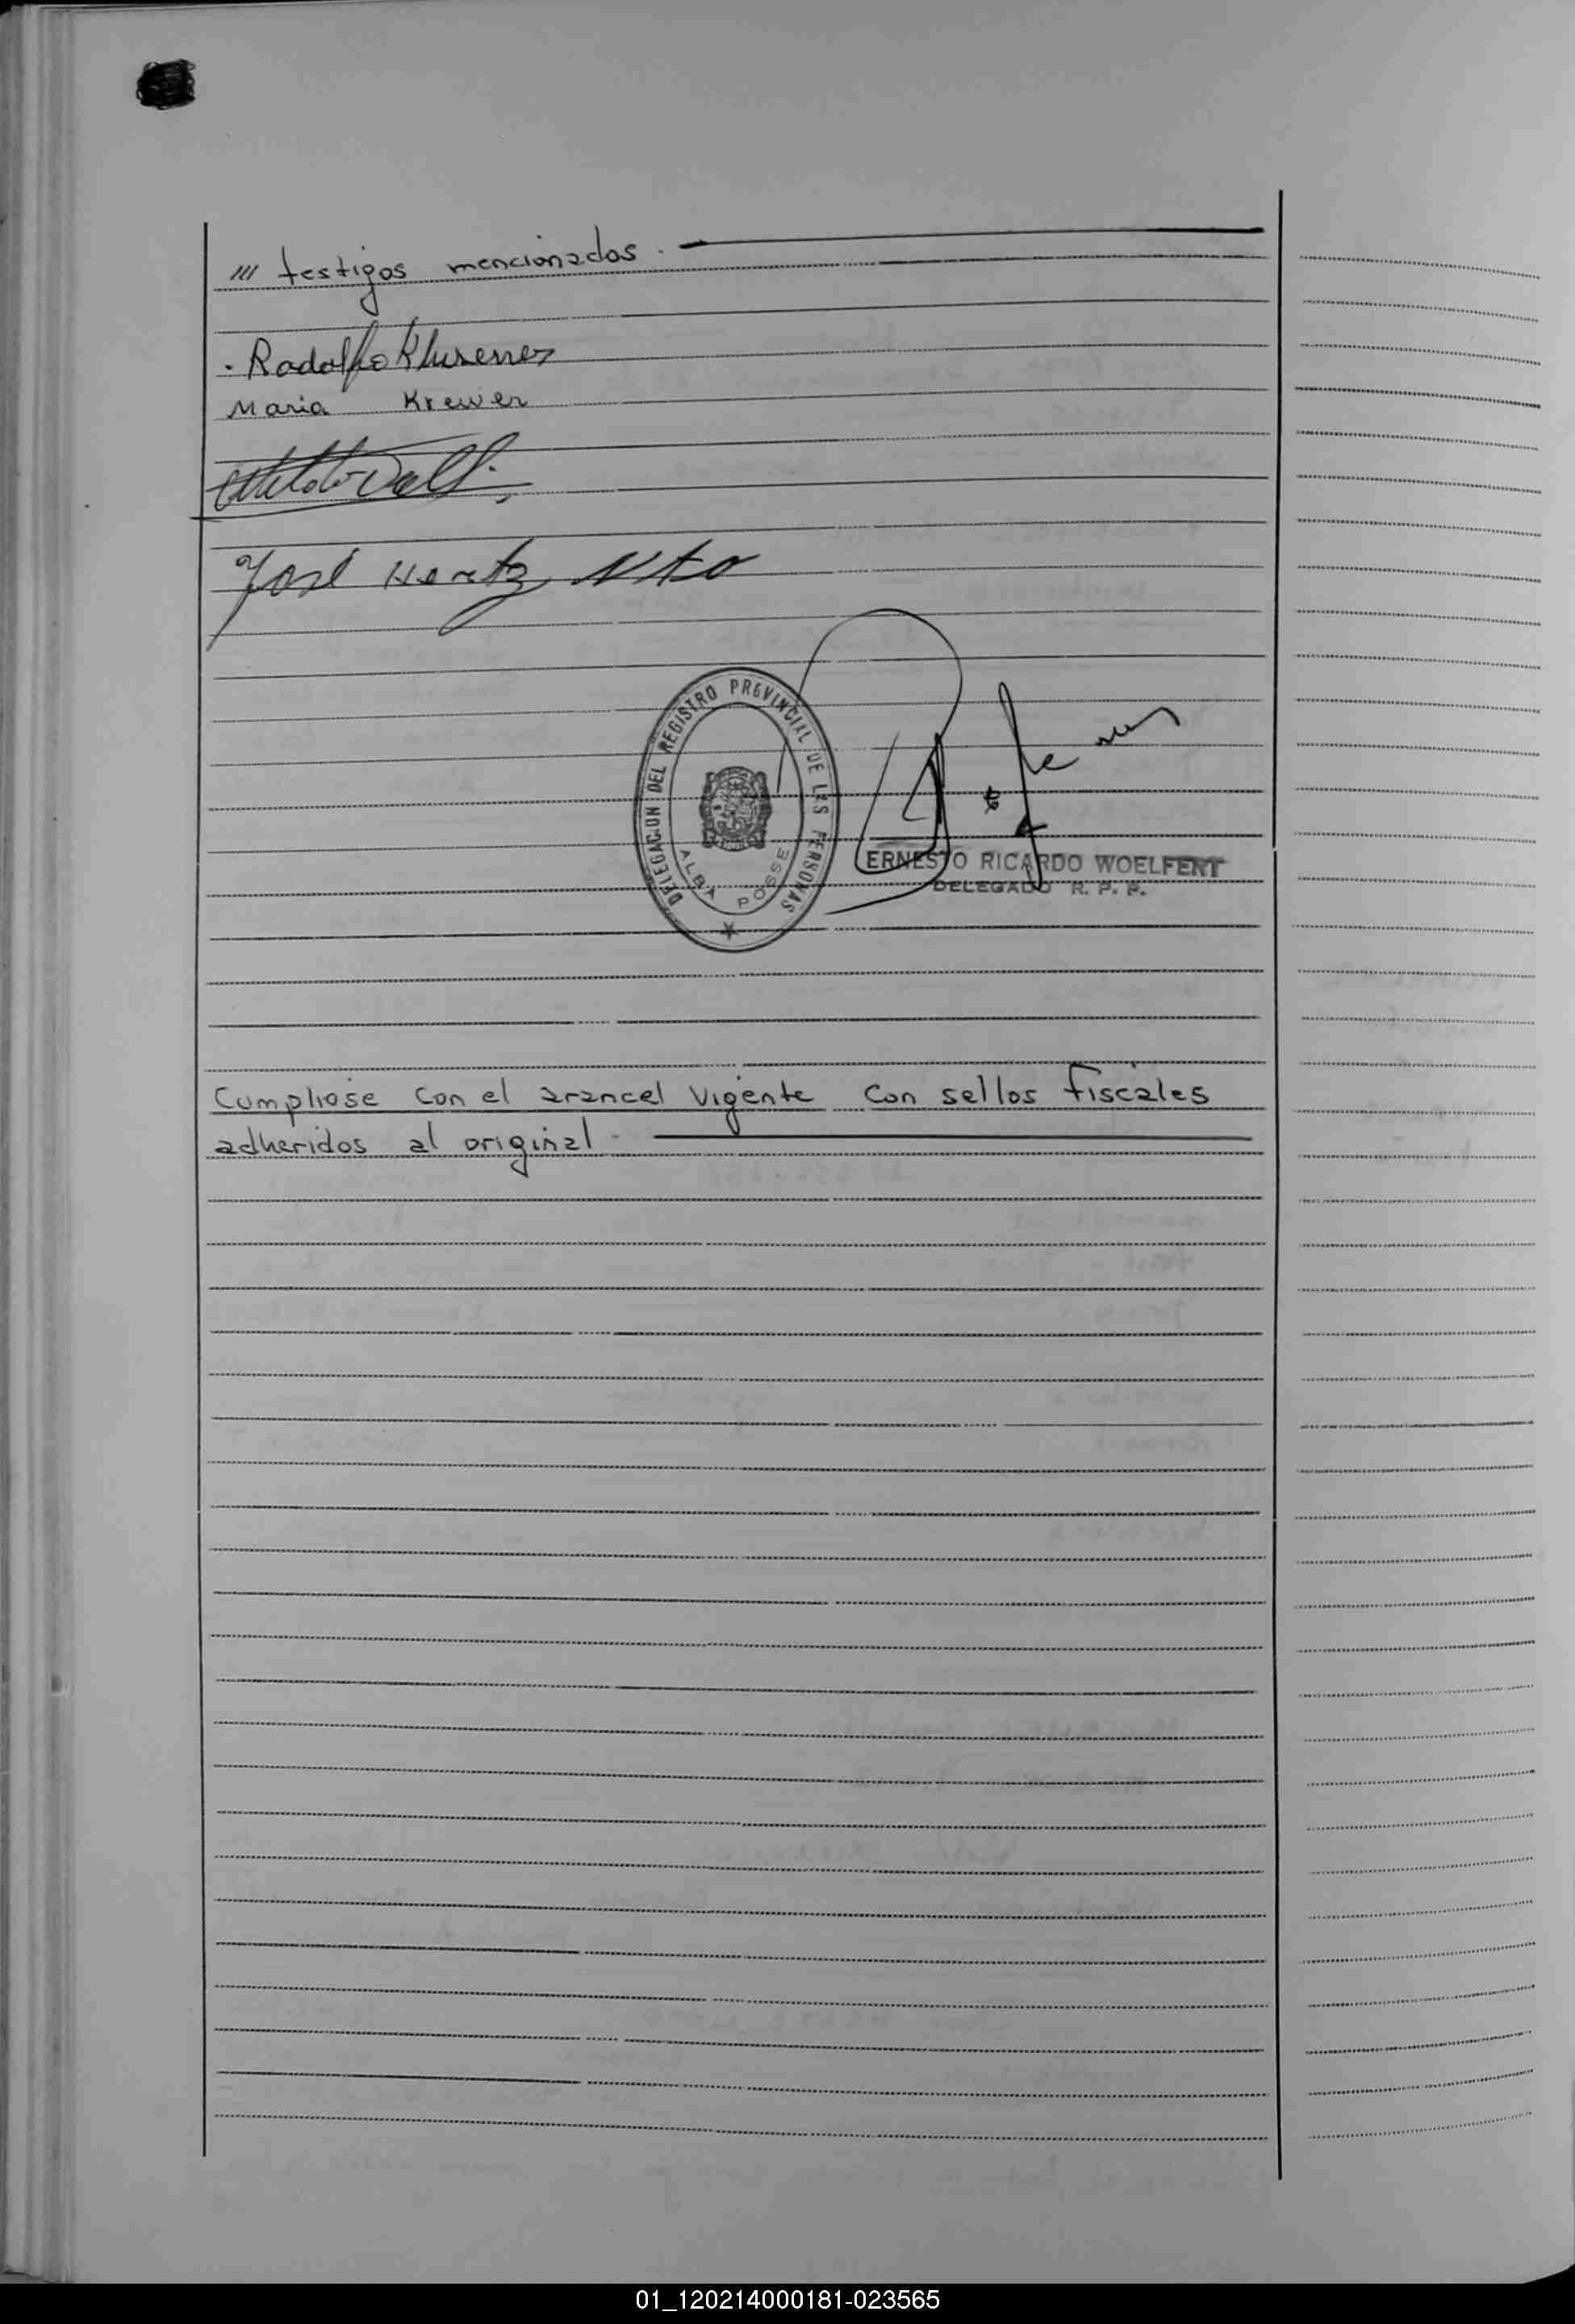 /// testigos mencionados.
Maria Krewer
José Hertz Nto
DELEGACION DEL REGISTRO PROVINCIAL DE LAS PERSONAS
ALBA POSSE
ERNESTO RICARDO WOELFERT
DELEGADO R. P. P.
Cumpliose con el arancel vigente con sellos fiscales
adheridos al original.
01_120214000181-023565